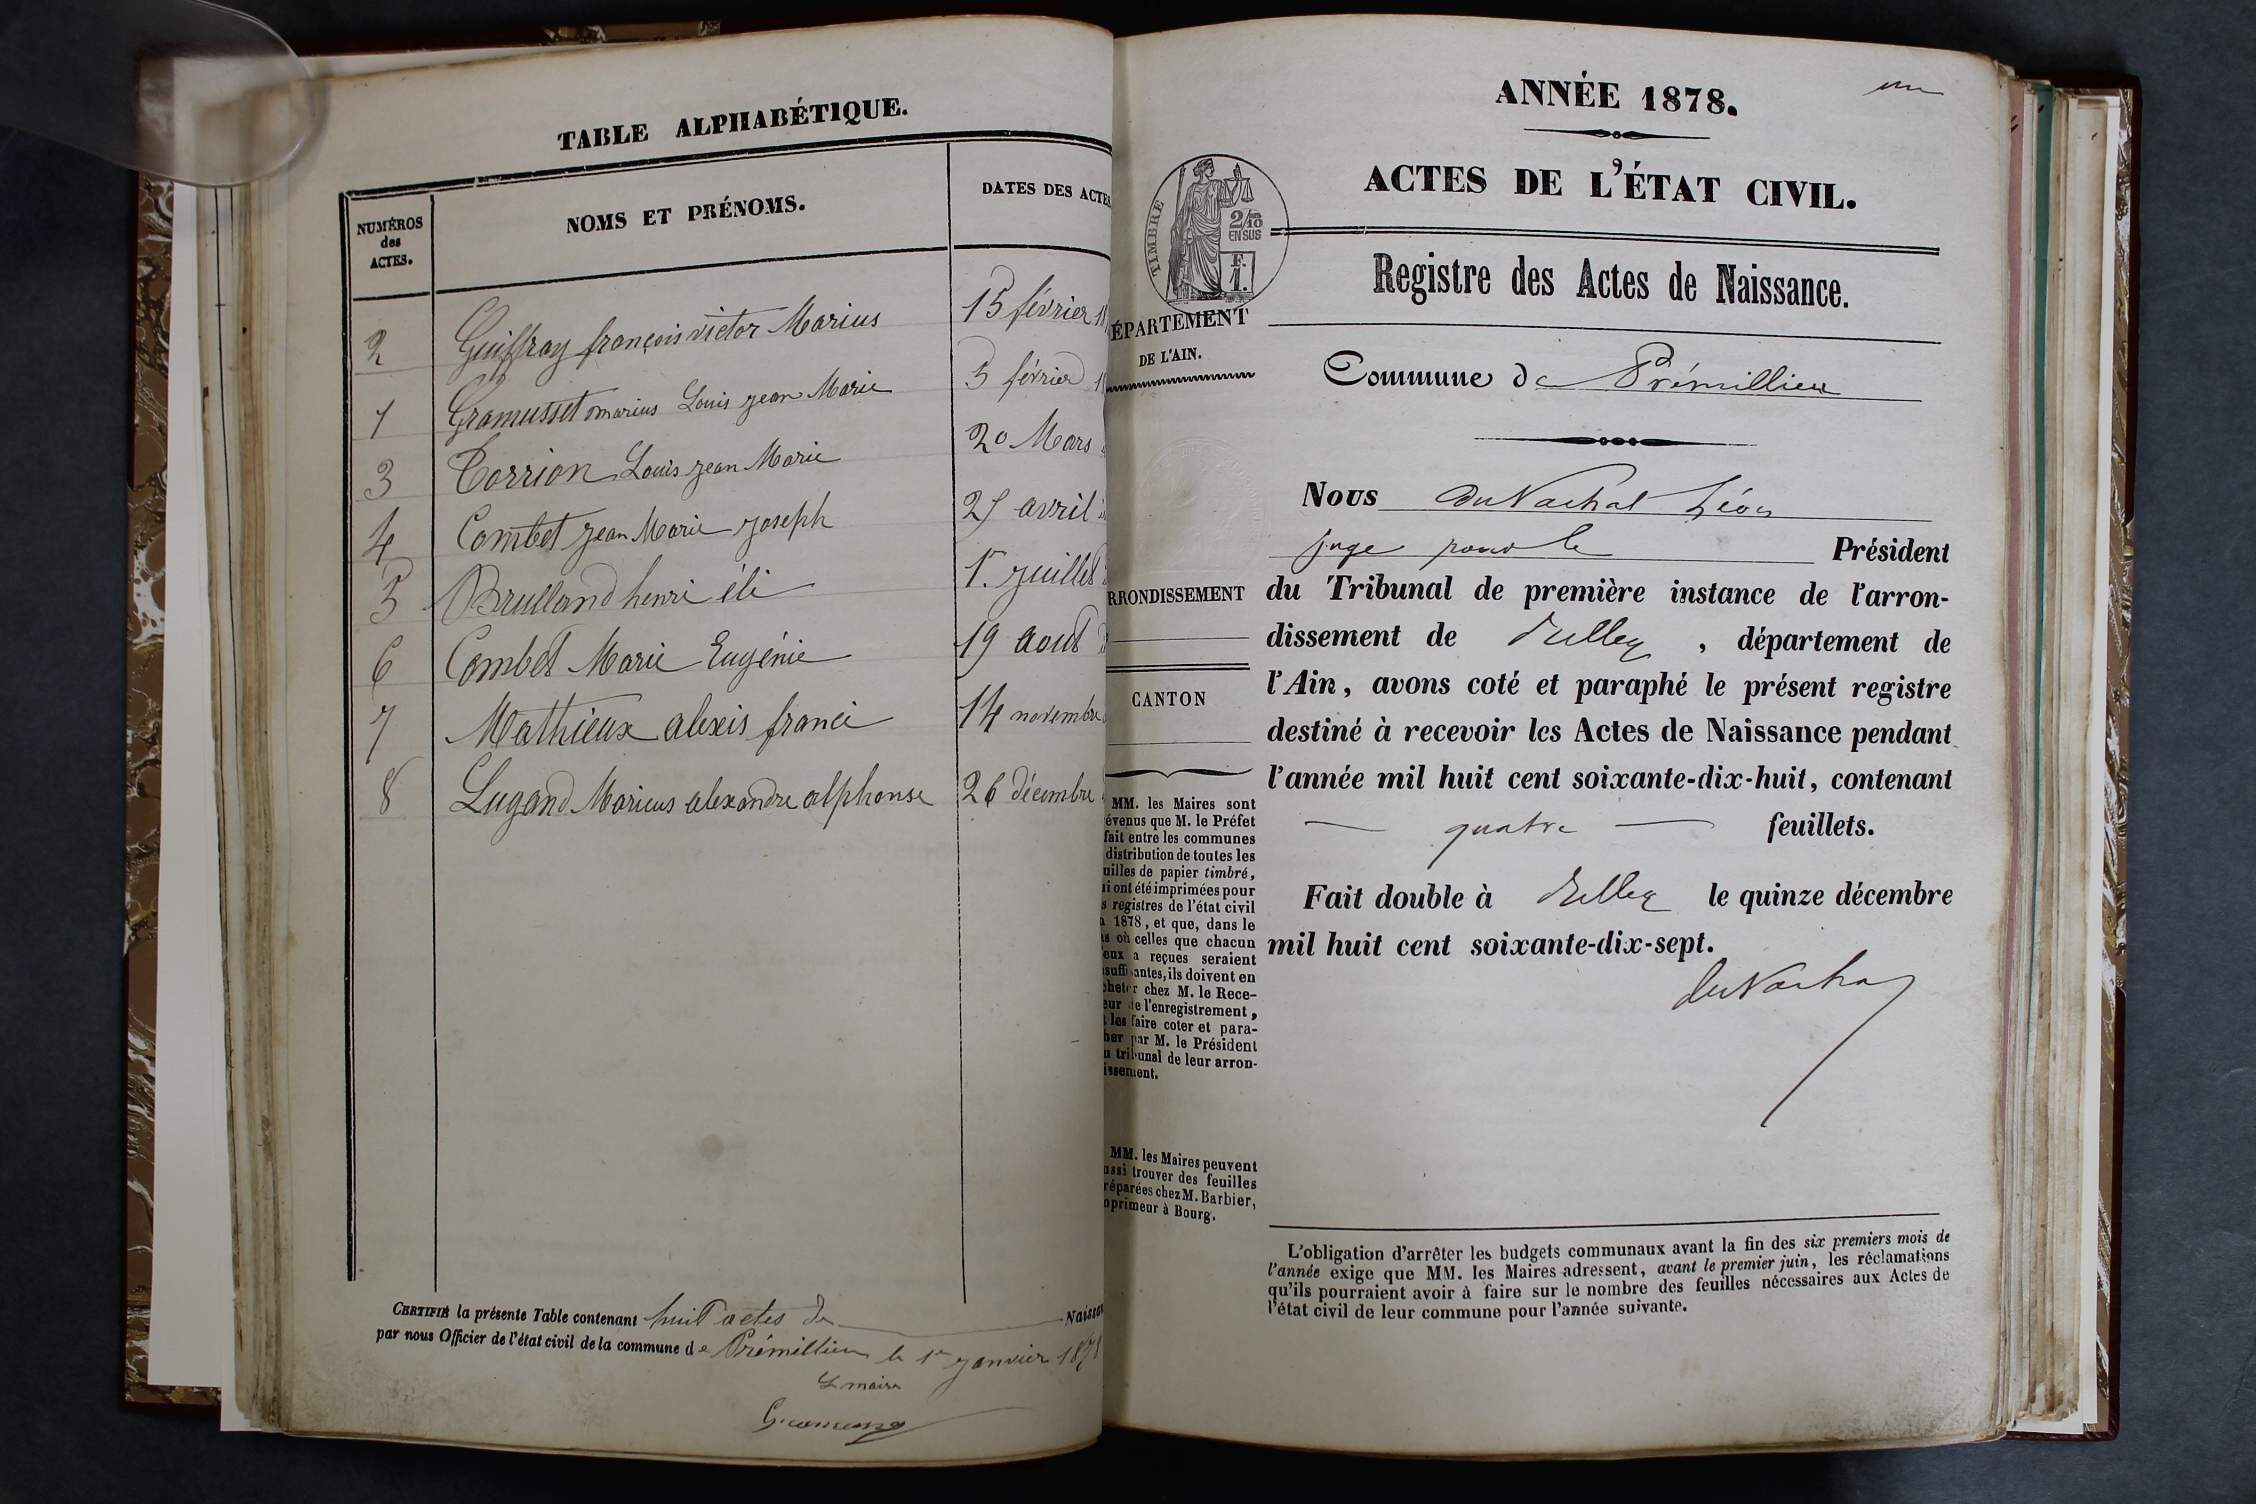 TABLE ALPHABÉTIQUE.
NUMÉROS des ACTES.
NOMS ET PRÉNOMS.
DATES DES ACTES
2 Guiffray françois victor Marius 15 février 18
1 Gramusset marius Louis jean Marie 5 février 1
3 Corrion Louis jean Marie 20 Mars
4 Combet jean Marie joseph 27 avril
5 Brulland henri éli 1er juillet
6 Combet Marie Eugénie 19 aout
7 Mathieux alexis franci 14 novembre
8 Lugand Marius alexandre alphonse 26 décembre
CERTIFIÉ la présente Table contenant huit actes de Naissan
par nous Officier de l'état civil de la commune de Prémillieu le 1er janvier 1878
Le maire
ANNÉE 1878.
un
ACTES DE L'ÉTAT CIVIL.
TIMBRE
2/10 EN SUS
F. 1.
Registre des Actes de Naissance.
ÉPARTEMENT
DE L'AIN.
Commune de Prémillieu
Nous du Vachat Léon
juge pour le Président
RRONDISSEMENT
du Tribunal de première instance de l'arron-
dissement de Belley, département de
l'Ain, avons coté et paraphé le présent registre
CANTON
destiné à recevoir les Actes de Naissance pendant
l'année mil huit cent soixante-dix-huit, contenant
quatre feuillets.
Fait double à Belley le quinze décembre
mil huit cent soixante-dix-sept.
du Vachat
MM. les Maires sont
évenus que M. le Préfet
fait entre les communes
distribution de toutes les
uilles de papier timbré,
i ont été imprimées pour
s registres de l'état civil
1878, et que, dans le
s où celles que chacun
eux a reçues seraient
suffisantes, ils doivent en
cheter chez M. le Rece-
eur de l'enregistrement,
les faire coter et para-
her par M. le Président
u tribunal de leur arron-
issement.
MM. les Maires peuvent
ussi trouver des feuilles
réparées chez M. Barbier,
mprimeur à Bourg.
L'obligation d'arrêter les budgets communaux avant la fin des six premiers mois de
l'année exige que MM. les Maires adressent, avant le premier juin, les réclamations
qu'ils pourraient avoir à faire sur le nombre des feuilles nécessaires aux Actes de
l'état civil de leur commune pour l'année suivante.